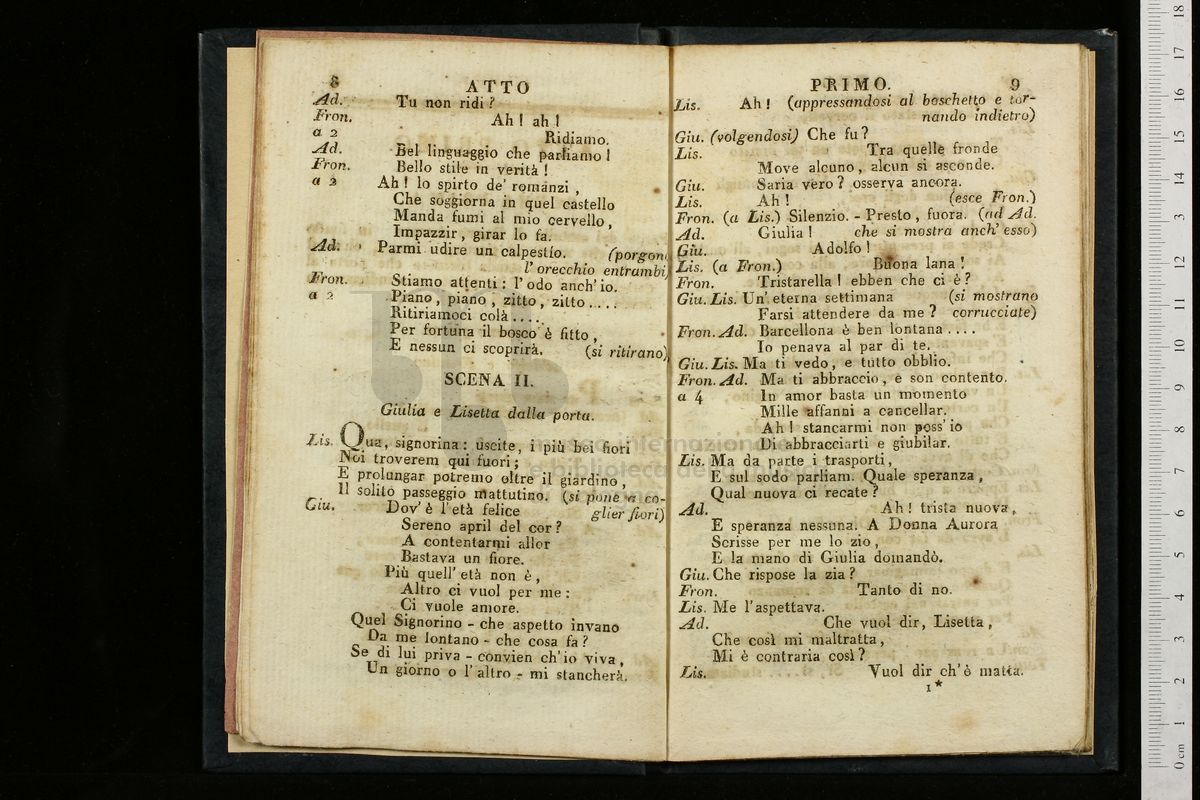 8
ATTO
Ad. Tu non ridi?
Fron. Ah! ah!
a 2 Ridiamo.
Ad. Bel linguaggio che parliamo!
Fron. Bello stile in verità!
a 2 Ah! lo spirto de' romanzi,
Che soggiorna in quel castello
Manda fumi al mio cervello,
Impazzir, girar lo fa.
Ad. Parmi udire un calpestìo. (porgon
l'orecchio entrambi)
Fron. Stiamo attenti: l'odo anch'io.
a 2 Piano, piano, zitto, zitto....
Ritiriamoci colà....
Per fortuna il bosco è fitto,
E nessun ci scoprirà. (si ritirano)
SCENA II.
Giulia e Lisetta dalla porta.
Lis. Qua, signorina: uscite, i più bei fiori
Noi troverem qui fuori;
E prolungar potremo oltre il giardino,
Il solito passeggio mattutino. (si pone a co-
Giu. Dov'è l'età felice glier fiori)
Sereno april del cor?
A contentarmi allor
Bastava un fiore.
Più quell'età non è,
Altro ci vuol per me:
Ci vuole amore.
Quel Signorino - che aspetto invano
Da me lontano - che cosa fa?
Se di lui priva - convien ch'io viva,
Un giorno o l'altro - mi stancherà.
PRIMO.
9
Lis. Ah! (appressandosi al boschetto e tor-
nando indietro)
Giu. (volgendosi) Che fu?
Lis. Tra quelle fronde
Move alcuno, alcun si asconde.
Giu. Saria vero? osserva ancora.
Lis. Ah! (esce Fron.)
Fron. (a Lis.) Silenzio. - Presto, fuora. (ad Ad.
Ad. Giulia! che si mostra anch'esso)
Giu. Adolfo!
Lis. (a Fron.) Buona lana!
Fron. Tristarella! ebben che ci è?
Giu. Lis. Un'eterna settimana (si mostrano
Farsi attendere da me? corrucciate)
Fron. Ad. Barcellona è ben lontana....
Io penava al par di te.
Giu. Lis. Ma ti vedo, e tutto obblio.
Fron. Ad. Ma ti abbraccio, e son contento.
a 4 In amor basta un momento
Mille affanni a cancellar.
Ah! stancarmi non poss'io
Di abbracciarti e giubilar.
Lis. Ma da parte i trasporti,
E sul sodo parliam. Quale speranza,
Qual nuova ci recate?
Ad. Ah! trista nuova,
E speranza nessuna. A Donna Aurora
Scrisse per me lo zio,
E la mano di Giulia domandò.
Giu. Che rispose la zia?
Fron. Tanto di no.
Lis. Me l'aspettava.
Ad. Che vuol dir, Lisetta,
Che così mi maltratta,
Mi è contraria così?
Lis. Vuol dir ch'è matta.
1*
museo internazionale
e biblioteca della musica
0 cm 1 2 3 4 5 6 7 8 9 10 11 12 13 14 15 16 17 18